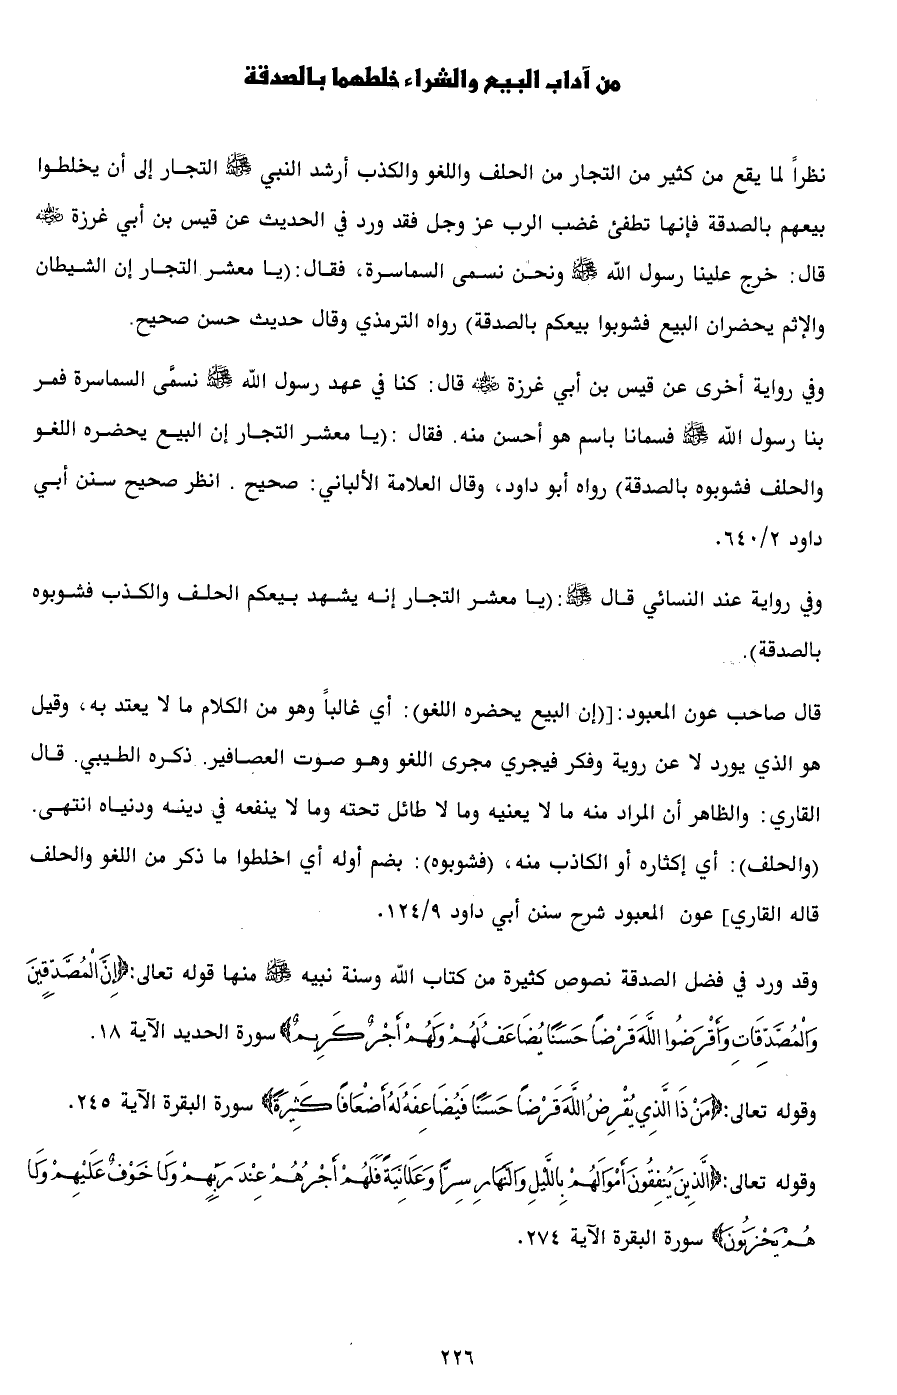 من آداب البيع والشراء خلطهما بالصدقة
نظراً لما يقع من كثير من التجار من الحلف واللغو والكذب أرشد النبي ﷺ التجار إلى أن يخلطوا
بيعهم بالصدقة فإنها تطفئ غضب الرب عز وجل فقد ورد في الحديث عن قيس بن أبي غرزة ﷺ
قال: خرج علينا رسول الله ﷺ ونحن نسمى السماسرة، فقال:(يا معشر التجار إن الشيطان
والإثم يحضران البيع فشوبوا بيعكم بالصدقة) رواه الترمذي وقال حديث حسن صحيح.
وفي رواية أخرى عن قيس بن أبي غرزة ﷺ قال: كنا في عهد رسول الله ﷺ نسمَّى السماسرة فمر
بنا رسول الله ﷺ فسمانا باسم هو أحسن منه. فقال :(يا معشر التجار إن البيع يحضره اللغو
والحلف فشوبوه بالصدقة) رواه أبو داود، وقال العلامة الألباني: صحيح . انظر صحيح سنن أبي
داود ٦٤٠/٢.
وفي رواية عند النسائي قال ﷺ:(يا معشر التجار إنه يشهد بيعكم الحلف والكذب فشوبوه
بالصدقة).
قال صاحب عون المعبود:[(إن البيع يحضره اللغو): أي غالباً وهو من الكلام ما لا يعتد به، وقيل
هو الذي يورد لا عن روية وفكر فيجري مجرى اللغو وهو صوت العصافير. ذكره الطيبي. قال
القاري: والظاهر أن المراد منه ما لا يعنيه وما لا طائل تحته وما لا ينفعه في دينه ودنياه انتهى.
(والحلف): أي إكثاره أو الكاذب منه، (فشوبوه): بضم أوله أي اخلطوا ما ذكر من اللغو والحلف
قاله القاري] عون المعبود شرح سنن أبي داود ١٢٤/٩.
وقد ورد في فضل الصدقة نصوص كثيرة من كتاب الله وسنة نبيه ﷺ منها قوله تعالى:﴿إِنَّ الْمُصَّدِّقِينَ
وَالْمُصَّدِّقَاتِ وَأَقْرَضُوا اللَّهَ قَرْضًا حَسَنًا يُضَاعَفُ لَهُمْ وَلَهُمْ أَجْرٌ كَرِيمٌ﴾ سورة الحديد الآية ١٨.
وقوله تعالى:﴿مَنْ ذَا الَّذِي يُقْرِضُ اللَّهَ قَرْضًا حَسَنًا فَيُضَاعِفَهُ لَهُ أَضْعَافًا كَثِيرَةً﴾ سورة البقرة الآية ٢٤٥.
وقوله تعالى:﴿الَّذِينَ يُنْفِقُونَ أَمْوَالَهُمْ بِاللَّيْلِ وَالنَّهَارِ سِرًّا وَعَلَانِيَةً فَلَهُمْ أَجْرُهُمْ عِنْدَ رَبِّهِمْ وَلَا خَوْفٌ عَلَيْهِمْ وَلَا
هُمْ يَحْزَنُونَ﴾ سورة البقرة الآية ٢٧٤.
٢٢٦